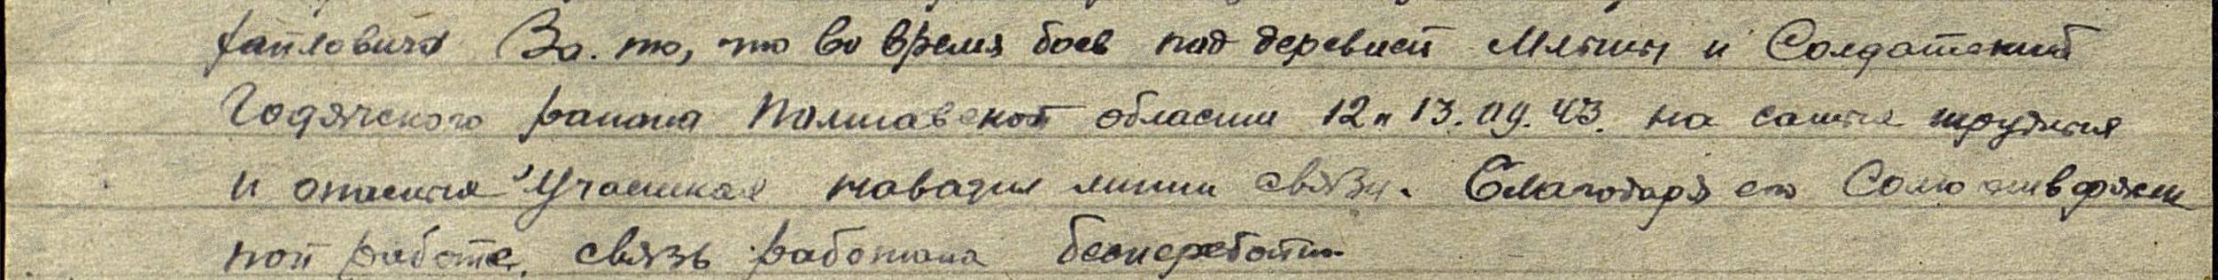 файловича За то, что во время боев под деревней Млыны и Солдатский
Годячского района Полтавской области 12 и 13.09.43. на самых трудных
и опасных участках наводил линии связи. Благодаря его Самоотвержен
ной работе, связь работала бесперебойно